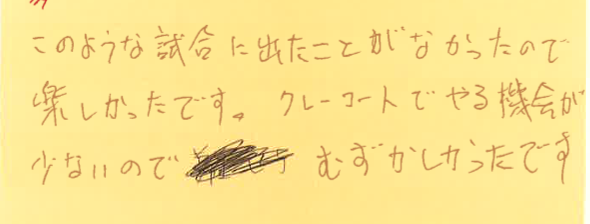 このような試合に出たことがなかったので
楽しかったです。クレーコートでやる機会が
少ないので むずかしかったです